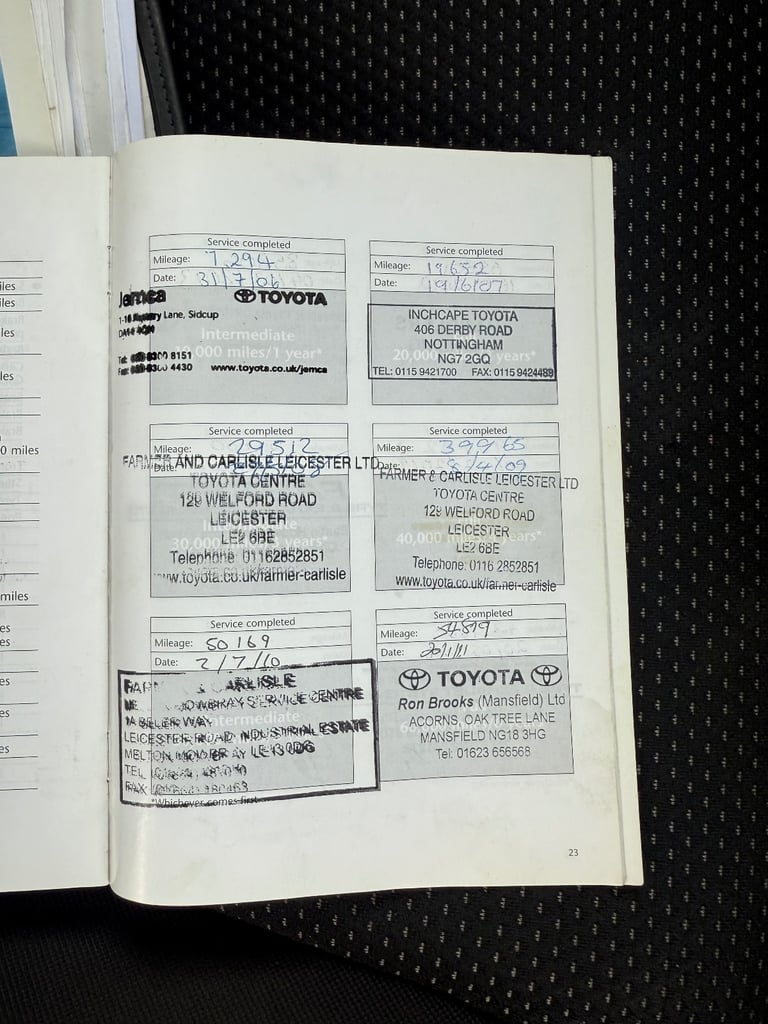 iles
iles
les
0 miles
miles
es
es
es
es
es
es
Service completed
Mileage: 7,294
Date: 31/7/06
Jemca TOYOTA
Lane, Sidcup
Intermediate
10,000 miles/1 year*
Tel: 8300 8151
Fax: 8300 4430 www.toyota.co.uk/jemca
Service completed
Mileage: 19652
Date: 19/6/07
INCHCAPE TOYOTA
406 DERBY ROAD
NOTTINGHAM
20,000 years*
NG7 2GQ
TEL: 0115 9421700 FAX: 0115 9424489
Service completed
Mileage: 29512
Date:
FARMER AND CARLISLE LEICESTER LTD
TOYOTA CENTRE
129 WELFORD ROAD
LEICESTER
LE2 6BE
30,000 years*
Telephone: 01162852851
www.toyota.co.uk/farmer-carlisle
Service completed
Mileage: 39965
Date: 8/4/09
FARMER & CARLISLE LEICESTER LTD
TOYOTA CENTRE
129 WELFORD ROAD
LEICESTER
40,000 years*
LE2 6BE
Telephone: 0116 2852851
www.toyota.co.uk/farmer-carlisle
Service completed
Mileage: 50169
Date: 2/7/10
FARMER & CARLISLE
MOWBRAY SERVICE CENTRE
WAY
Intermediate
LEICESTER ROAD INDUSTRIAL ESTATE
MELTON MOWBRAY LE13 0DG
TEL
FAX
*Whichever comes first
Service completed
Mileage: 54819
Date: 20/1/11
TOYOTA
Ron Brooks (Mansfield) Ltd
ACORNS, OAK TREE LANE
MANSFIELD NG18 3HG
Tel: 01623 656568
23